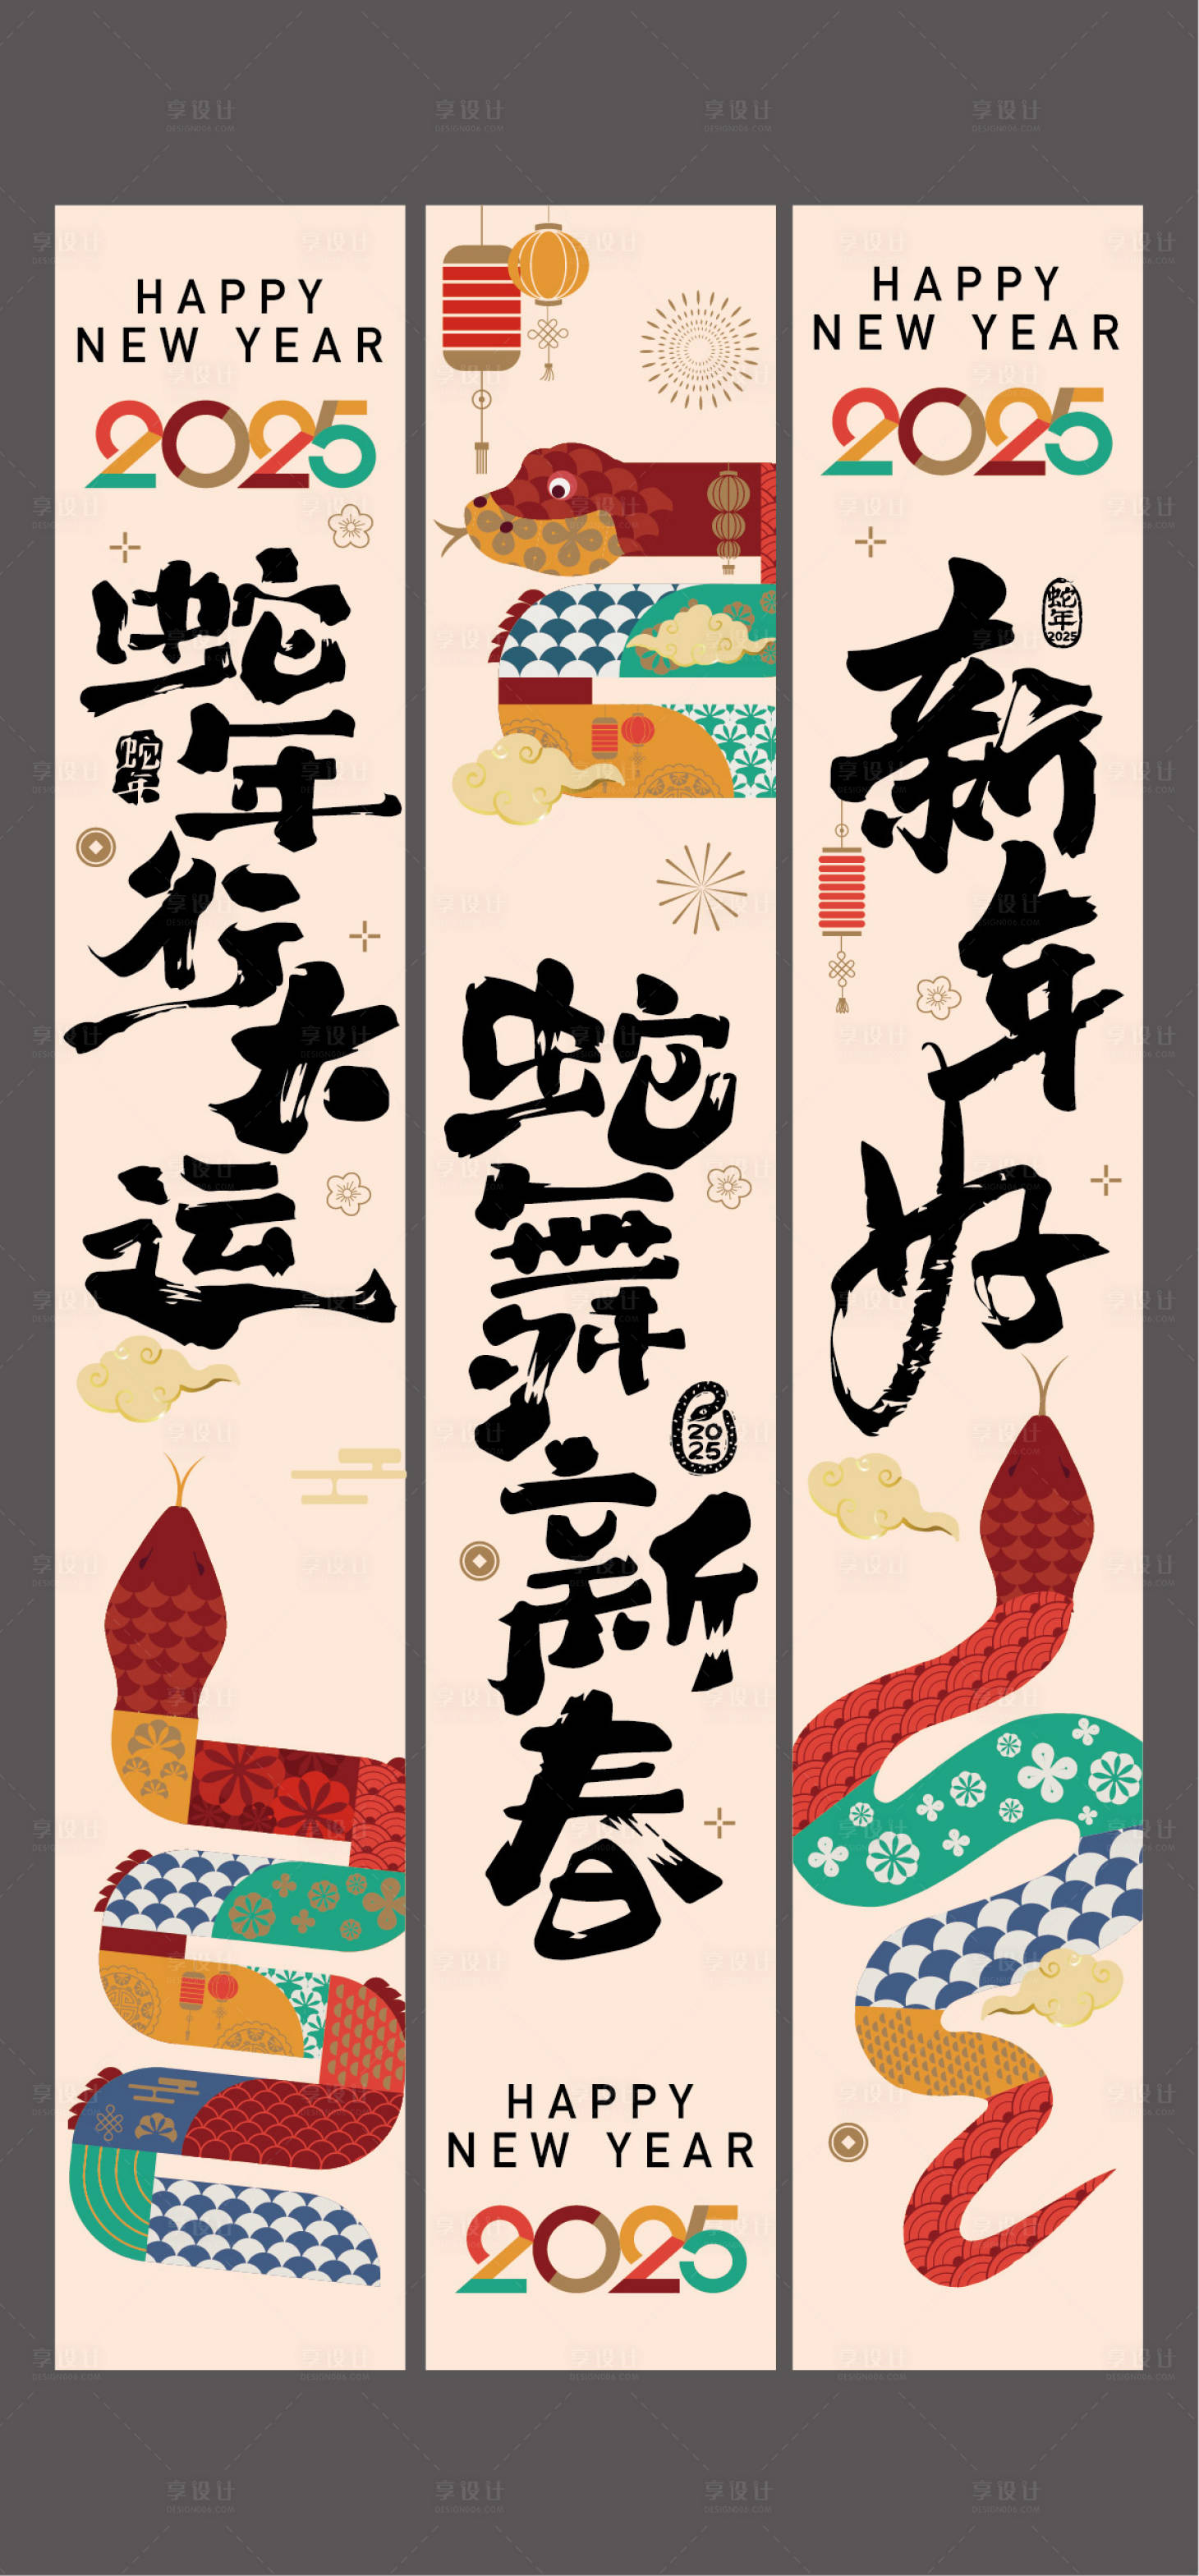 HAPPY
NEW YEAR
2025
蛇年行大运
蛇年
蛇舞新春
2025
HAPPY
NEW YEAR
2025
HAPPY
NEW YEAR
2025
新年好
蛇年
2025
享设计
DESIGN006.COM